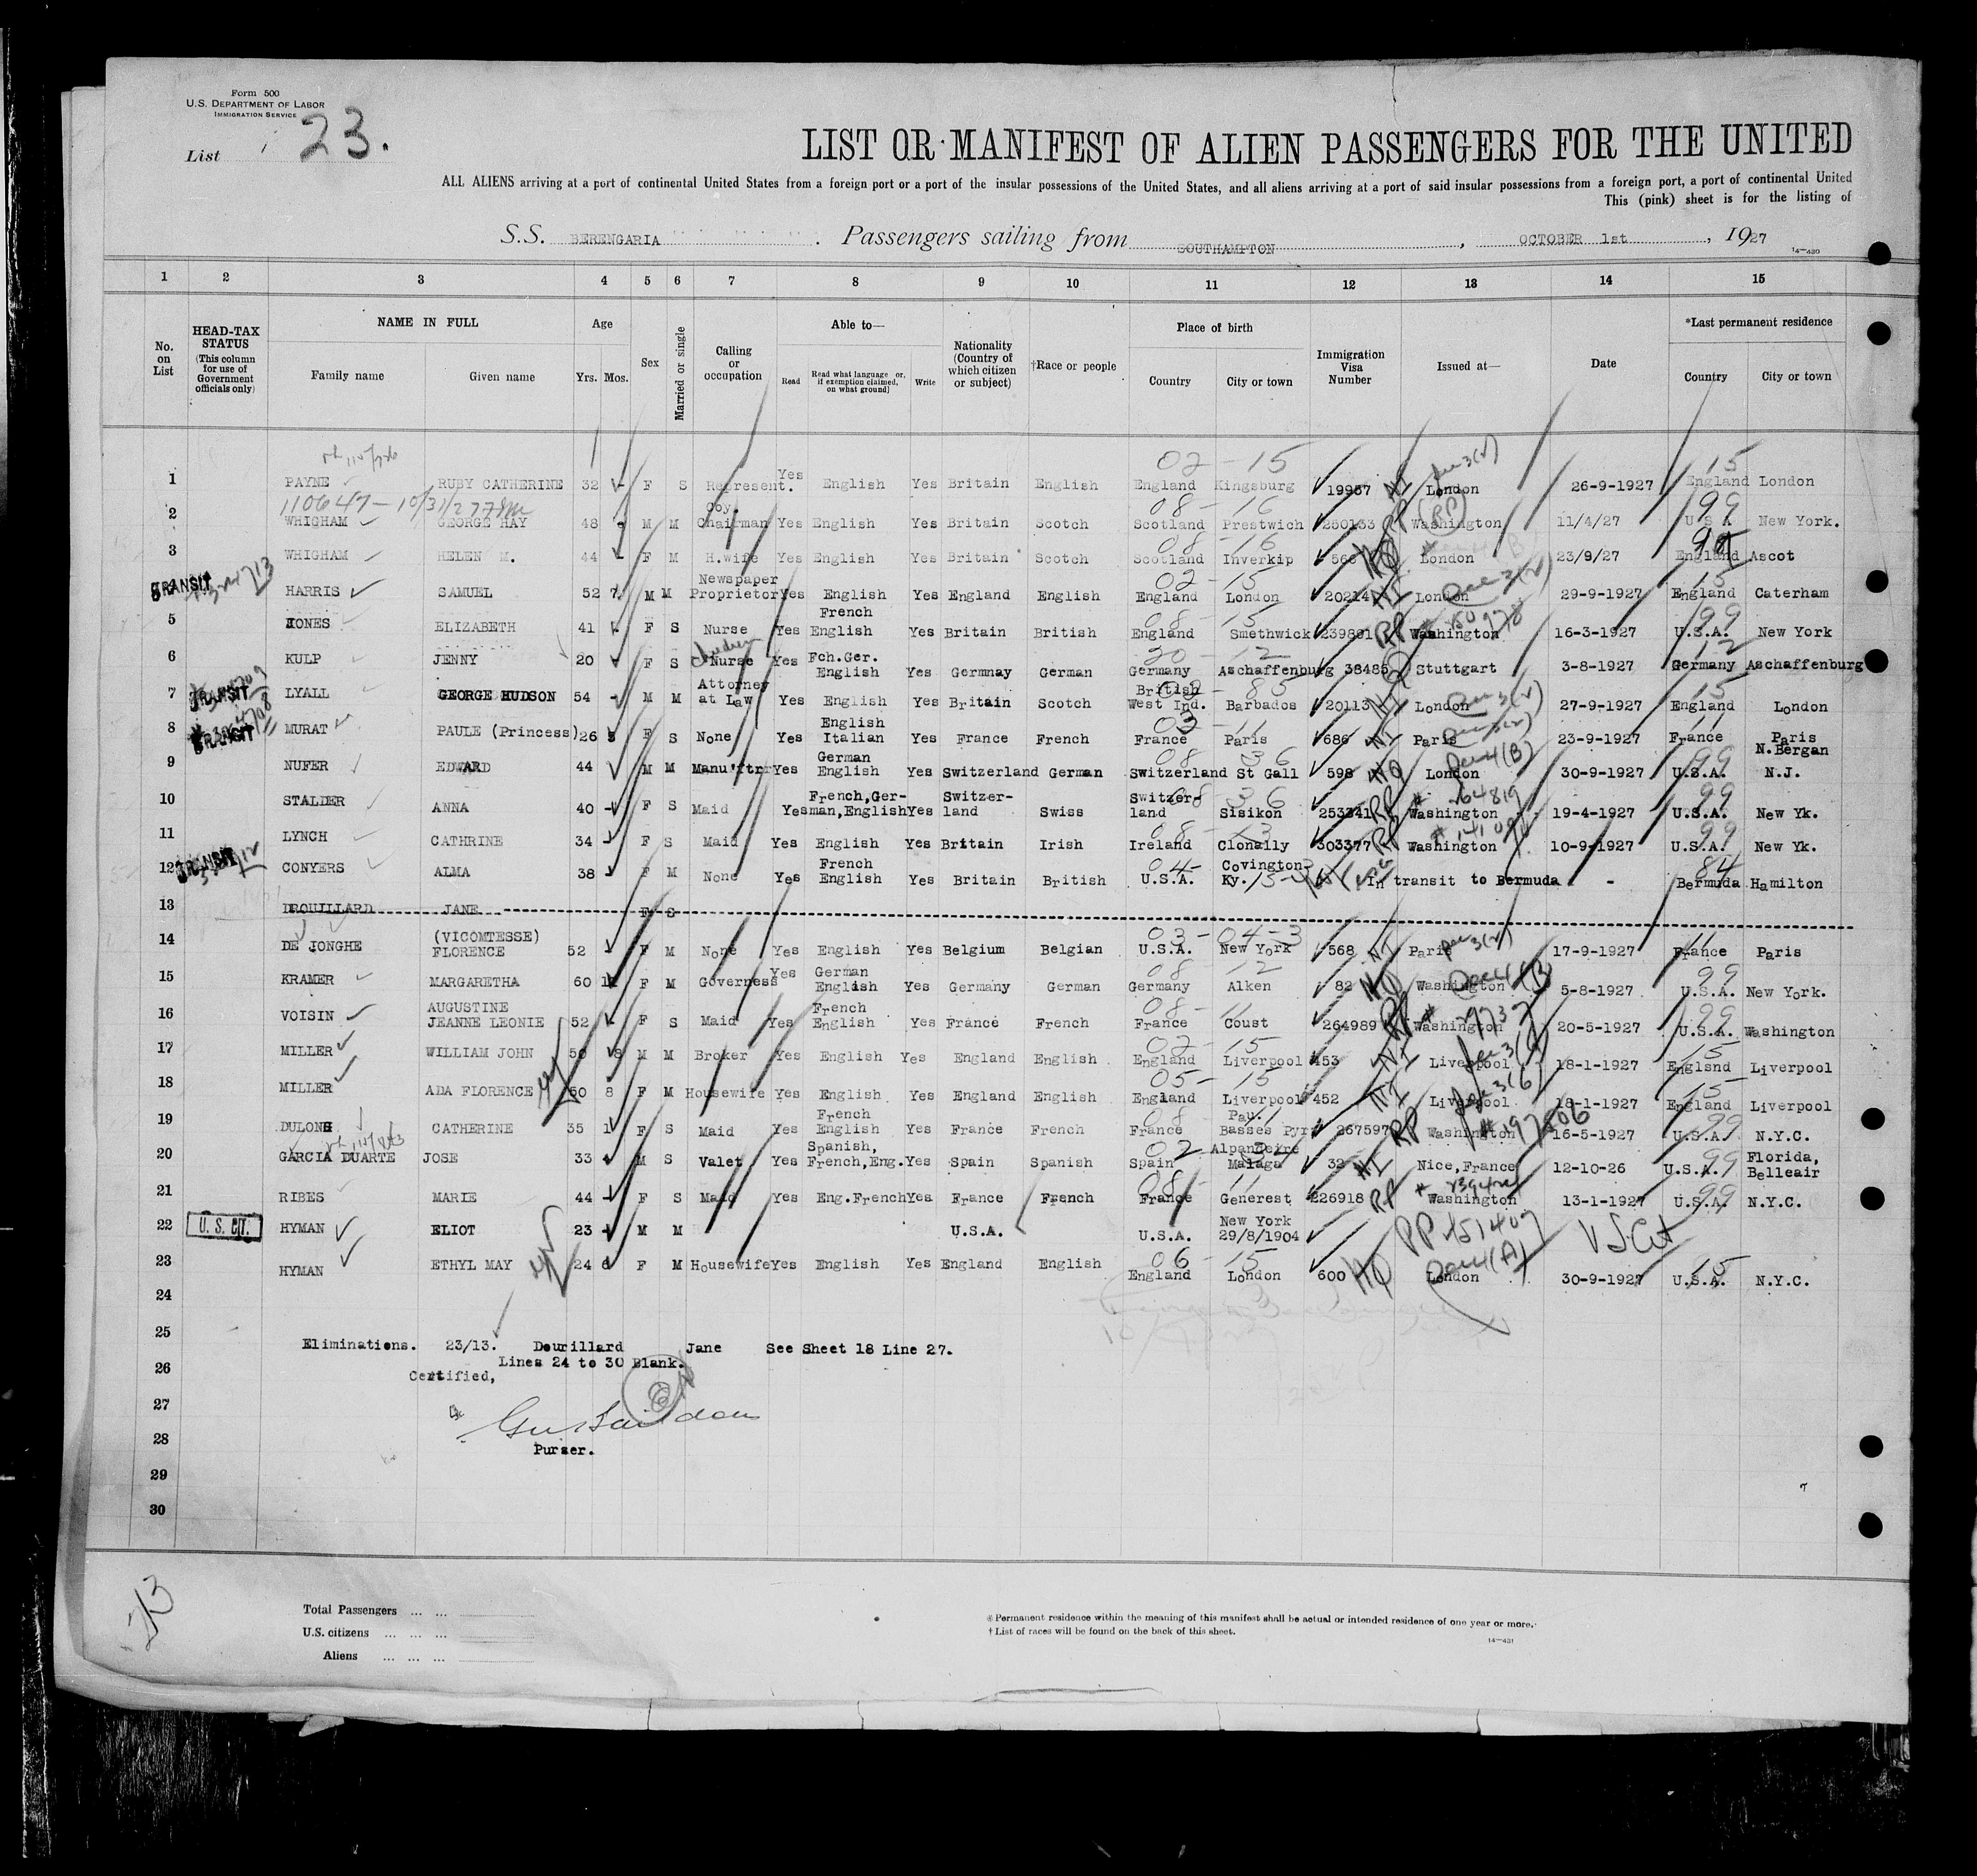 Form 500
U.S. DEPARTMENT OF LABOR
IMMIGRATION SERVICE
List 23.
LIST OR MANIFEST OF ALIEN PASSENGERS FOR THE UNITED
ALL ALIENS arriving at a port of continental United States from a foreign port or a port of the insular possessions of the United States, and all aliens arriving at a port of said insular possessions from a foreign port, a port of continental United
This (pink) sheet is for the listing of
S.S. BERENGARIA . Passengers sailing from SOUTHAMPTON , OCTOBER 1st , 1927
14—430
1 2 3 4 5 6 7 8 9 10 11 12 13 14 15
No. on List
HEAD-TAX STATUS (This column for use of Government officials only)
NAME IN FULL
Family name Given name
Age
Yrs. Mos.
Sex
Married or single
Calling or occupation
Able to—
Read
Read what language or, if exemption claimed, on what ground]
Write
Nationality (Country of which citizen or subject)
†Race or people
Place of birth
Country City or town
Immigration Visa Number
Issued at—
Date
*Last permanent residence
Country City or town
02 - 15 15
1 PAYNE RUBY CATHERINE 32 F S Represent. Yes English Yes Britain English England Kingsburg 19967 NI London 26-9-1927 England London
110647 - 10/31/27
08 - 16 99
2 WHIGHAM GEORGE HAY 48 M M Coy. Chairman Yes English Yes Britain Scotch Scotland Prestwich 250133 RP Washington 11/4/27 U S A New York.
08 - 16
3 WHIGHAM HELEN M. 44 F M H.wife Yes English Yes Britain Scotch Scotland Inverkip 566 NQ London 23/9/27 England Ascot
02 - 15 15
TRANSIT HARRIS SAMUEL 52 7 M M Newspaper Proprietor Yes English Yes England English England London 20214 NI London 29-9-1927 England Caterham
08 - 15 99
5 JONES ELIZABETH 41 F S Nurse Yes French English Yes Britain British England Smethwick 239801 RP Washington 16-3-1927 U.S.A. New York
20 - 12 12
6 KULP JENNY 20 F S Nurse Yes Fch.Ger. English Yes Germnay German Germany Aschaffenburg 38485 Stuttgart 3-8-1927 Germany Aschaffenburg
85 15
7 TRANSIT LYALL GEORGE HUDSON 54 M M Attorney at Law Yes English Yes Britain Scotch British West Ind. Barbados 20113 NI London 27-9-1927 England London
03 - 11 11
8 TRANSIT MURAT PAULE (Princess) 26 F S None Yes English Italian Yes France French France Paris 686 NI Paris 23-9-1927 France Paris
08 - 36 99
9 NUFER EDWARD 44 M M Manu'ftrr Yes German English Yes Switzerland German Switzerland St Gall 598 NQ London 30-9-1927 U.S.A. N.Bergan N.J.
08 - 36 99
10 STALDER ANNA 40 F S Maid Yes French,Ger-man,English Yes Switzer-land Swiss Switzer-land Sisikon 253341 RP Washington 19-4-1927 U.S.A. New Yk.
08 - 13 99
11 LYNCH CATHRINE 34 F S Maid Yes English Yes Britain Irish Ireland Clonelly 303377 RP Washington 10-9-1927 U.S.A. New Yk.
04 84
12 TRANSIT CONYERS ALMA 38 F M None Yes French English Yes Britain British U.S.A. Covington Ky. In transit to Bermuda - Bermuda Hamilton
13 DROUILLARD JANE F S
03 - 04 - 3 11
14 DE JONGHE (VICOMTESSE) FLORENCE 52 F M None Yes English Yes Belgium Belgian U.S.A. New York 568 NI Paris 17-9-1927 France Paris
08 12 99
15 KRAMER MARGARETHA 60 F M Governess Yes German English Yes Germany German Germany Alken 82 NQ Washington 5-8-1927 U.S.A. New York.
08 - 11 99
16 VOISIN AUGUSTINE JEANNE LEONIE 52 F S Maid Yes French English Yes France French France Coust 264989 RP Washington 20-5-1927 U.S.A. Washington
02 - 15 15
17 MILLER WILLIAM JOHN 50 8 M M Broker Yes English Yes England English England Liverpool 453 NI Liverpool 18-1-1927 Englsnd Liverpool
05 - 15 15
18 MILLER ADA FLORENCE 50 8 F M Housewife Yes English Yes England English England Liverpool 452 NI Liverpool 18-1-1927 England Liverpool
08 - 11 99
19 DULONG CATHERINE 35 1 F S Maid Yes French English Yes France French France Pau. Basses Pyr. 267597 RP Washington #197806 16-5-1927 U.S.A. N.Y.C.
02 99
20 GARCIA DUARTE JOSE 33 M S Valet Yes Spanish, French,Eng. Yes Spain Spanish Spain Alpandeire Malaga 32 NI Nice,France 12-10-26 U.S.A. Florida, Belleair
08 - 11 99
21 RIBES MARIE 44 F S Maid Yes Eng.French Yes France French France Generest 226918 RP Washington 13-1-1927 U.S.A. N.Y.C.
22 U. S. CIT. HYMAN ELIOT 23 M M U.S.A. U.S.A. New York 29/8/1904 PP 451409 US Cit
06 - 15 15
23 HYMAN ETHYL MAY 24 6 F M Housewife Yes English Yes England English England London 600 NQ London 30-9-1927 U.S.A. N.Y.C.
24
25
Eliminations. 23/13. Dourillard Jane See Sheet 18 Line 27.
Lines 24 to 30 Blank.
26
Certified,
27
28
Purser.
29
30
Total Passengers ... ...
U.S. citizens ... ... ...
Aliens ... ... ...
* Permanent residence within the meaning of this manifest shall be actual or intended residence of one year or more.
† List of races will be found on the back of this sheet.
14—431